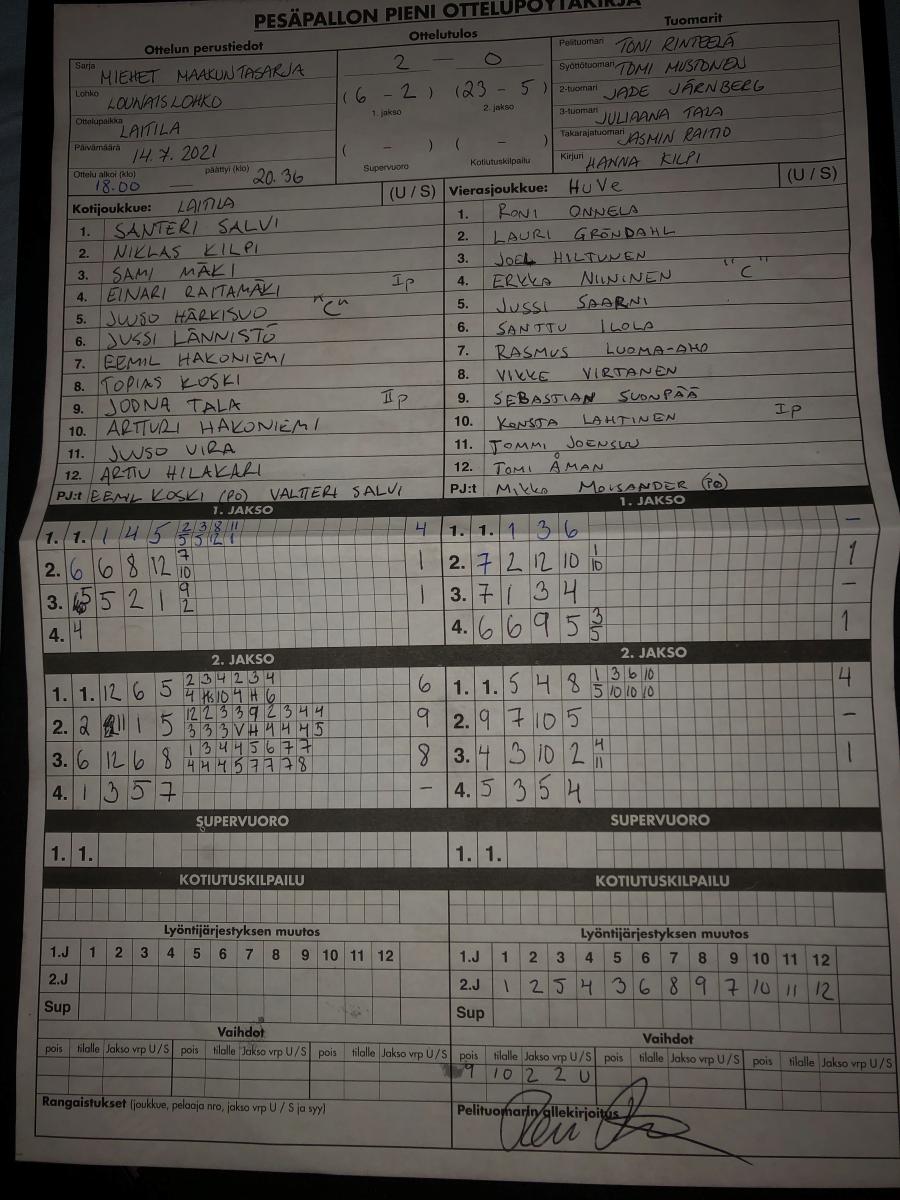 PESÄPALLON PIENI OTTELUPÖYTÄKIRJA
Ottelun perustiedot
Sarja MIEHET MAAKUNTASARJA
Lohko LOUNAISLOHKO
Ottelupaikka LAITILA
Päivämäärä 14.7.2021
Ottelu alkoi (klo) 18.00 — päättyi (klo) 20.36
Ottelutulos
2 — 0
(6 - 2) (23 - 5)
1. jakso 2. jakso
( - ) ( - )
Supervuoro Kotiutuskilpailu
Tuomarit
Pelituomari TONI RINTEELÄ
Syöttötuomari TOMI MUSTONEN
2-tuomari JADE JÄRNBERG
3-tuomari JULIAANA TALA
Takarajatuomari JASMIN RAITIO
Kirjuri HANNA KILPI
Kotijoukkue: LAITILA (U / S)
1. SANTERI SALVI
2. NIKLAS KILPI
3. SAMI MÄKI
4. EINARI RAITAMÄKI Ip
5. JUUSO HÄRKISUO "C"
6. JUSSI LÄNNISTÖ
7. EEMIL HAKONIEMI
8. TOPIAS KOSKI
9. JOONA TALA IIp
10. ARTTURI HAKONIEMI
11. JUUSO VIRA
12. ARTTU HILAKARI
PJ:t EEMIL KOSKI (PO) VALTTERI SALVI
Vierasjoukkue: HuVe (U / S)
1. RONI ONNELA
2. LAURI GRÖNDAHL
3. JOEL HILTUNEN
4. ERKKA NIININEN "C"
5. JUSSI SAARNI
6. SANTTU ILOLA
7. RASMUS LUOMA-AHO
8. VIKKE VIRTANEN
9. SEBASTIAN SUONPÄÄ
10. KONSTA LAHTINEN Ip
11. TOMMI JOENSUU
12. TOMI ÅMAN
PJ:t MIKKO MOISANDER (PO)
1. JAKSO
1. 1. 1 4 5 2 3 8 11 4
5 5 12 1
2. 6 6 8 12 7 1
10
3. 5 5 2 1 9 1
2
4. 4
1. JAKSO
1. 1. 1 3 6 –
2. 7 2 12 10 1 1
10
3. 7 1 3 4 –
4. 6 6 9 5 3 1
5
2. JAKSO
1. 1. 12 6 5 2 3 4 2 3 4 6
4 Hs 10 4 H 6
2. 2 11 1 5 12 2 3 3 9 2 3 4 4 9
3 3 3 V H 4 4 4 5
3. 6 12 6 8 1 3 4 4 5 6 7 7 8
4 4 4 5 7 7 7 8
4. 1 3 5 7 –
2. JAKSO
1. 1. 5 4 8 1 3 6 10 4
5 10 10 10
2. 9 7 10 5 –
3. 4 3 10 2 4 1
11
4. 5 3 5 4
SUPERVUORO
1. 1.
SUPERVUORO
1. 1.
KOTIUTUSKILPAILU
KOTIUTUSKILPAILU
Lyöntijärjestyksen muutos
1.J 1 2 3 4 5 6 7 8 9 10 11 12
2.J
Sup
Lyöntijärjestyksen muutos
1.J 1 2 3 4 5 6 7 8 9 10 11 12
2.J 1 2 5 4 3 6 8 9 7 10 11 12
Sup
Vaihdot
pois tilalle Jakso vrp U / S pois tilalle Jakso vrp U / S pois tilalle Jakso vrp U / S
Vaihdot
pois tilalle Jakso vrp U / S pois tilalle Jakso vrp U / S pois tilalle Jakso vrp U / S
9 10 2 2 U
Rangaistukset (joukkue, pelaaja nro, jakso vrp U / S ja syy)
Pelituomarin allekirjoitus